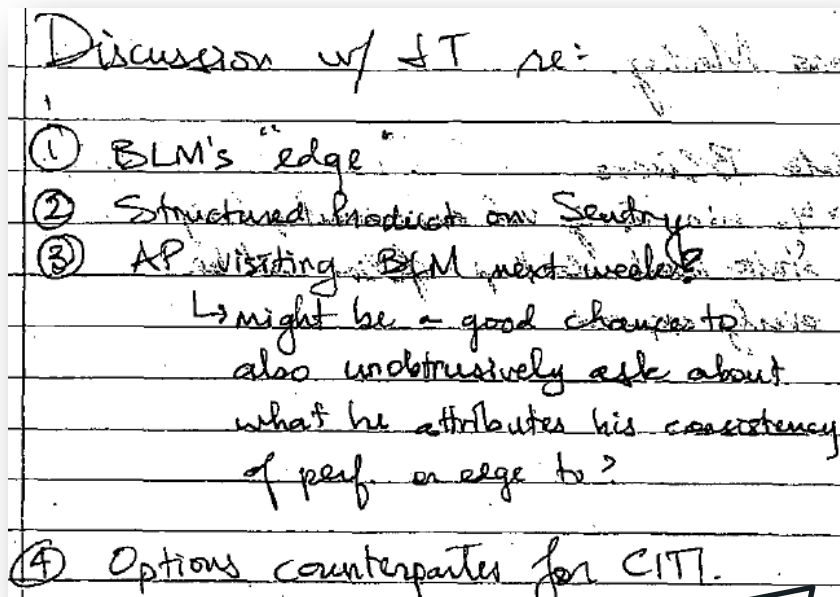 Discussion w/ JT re:
① BLM's "edge"
② Structured Product on Sentry
③ AP visiting BLM next week?
↳ might be a good chance to
also unobtrusively ask about
what he attributes his consistency
of perf. or edge to?
④ Options counterparties for CITI.